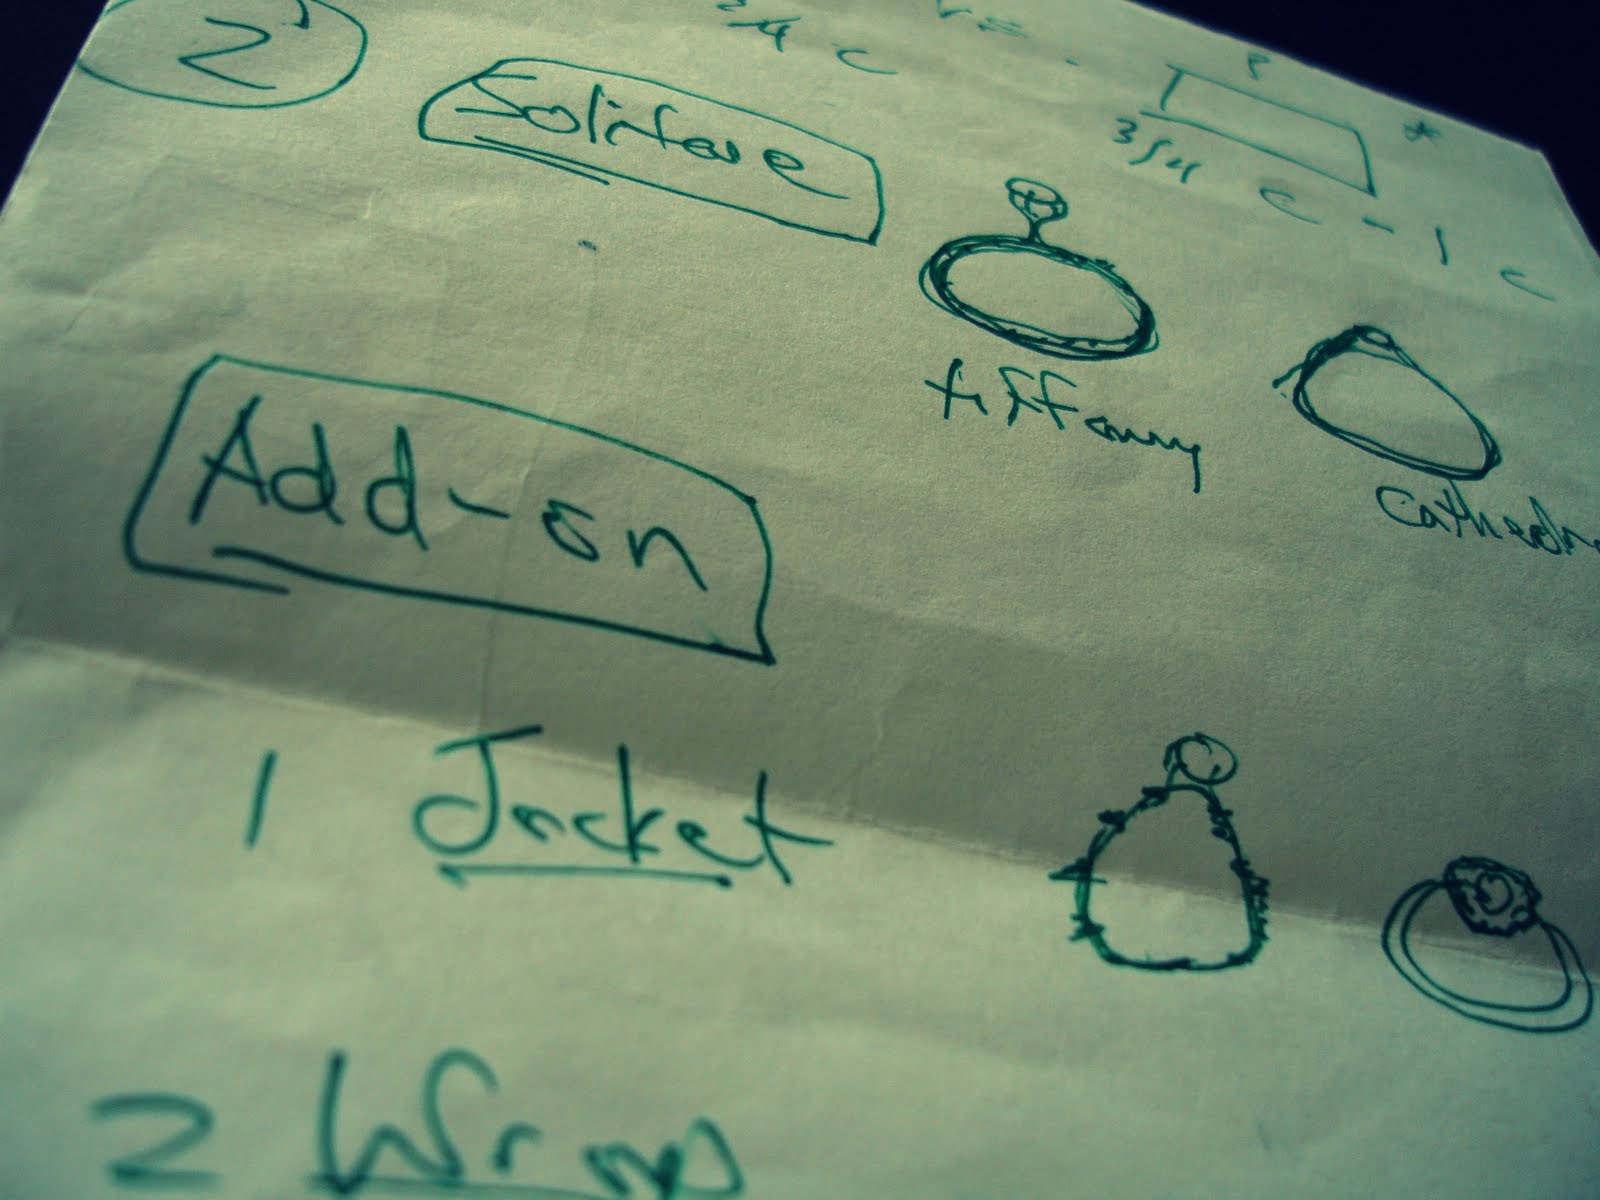 3/4 c
2
Solitare
3/4 c - 1 c
tiffany
Cathedr
Add-on
1 Jacket
2 Wrap